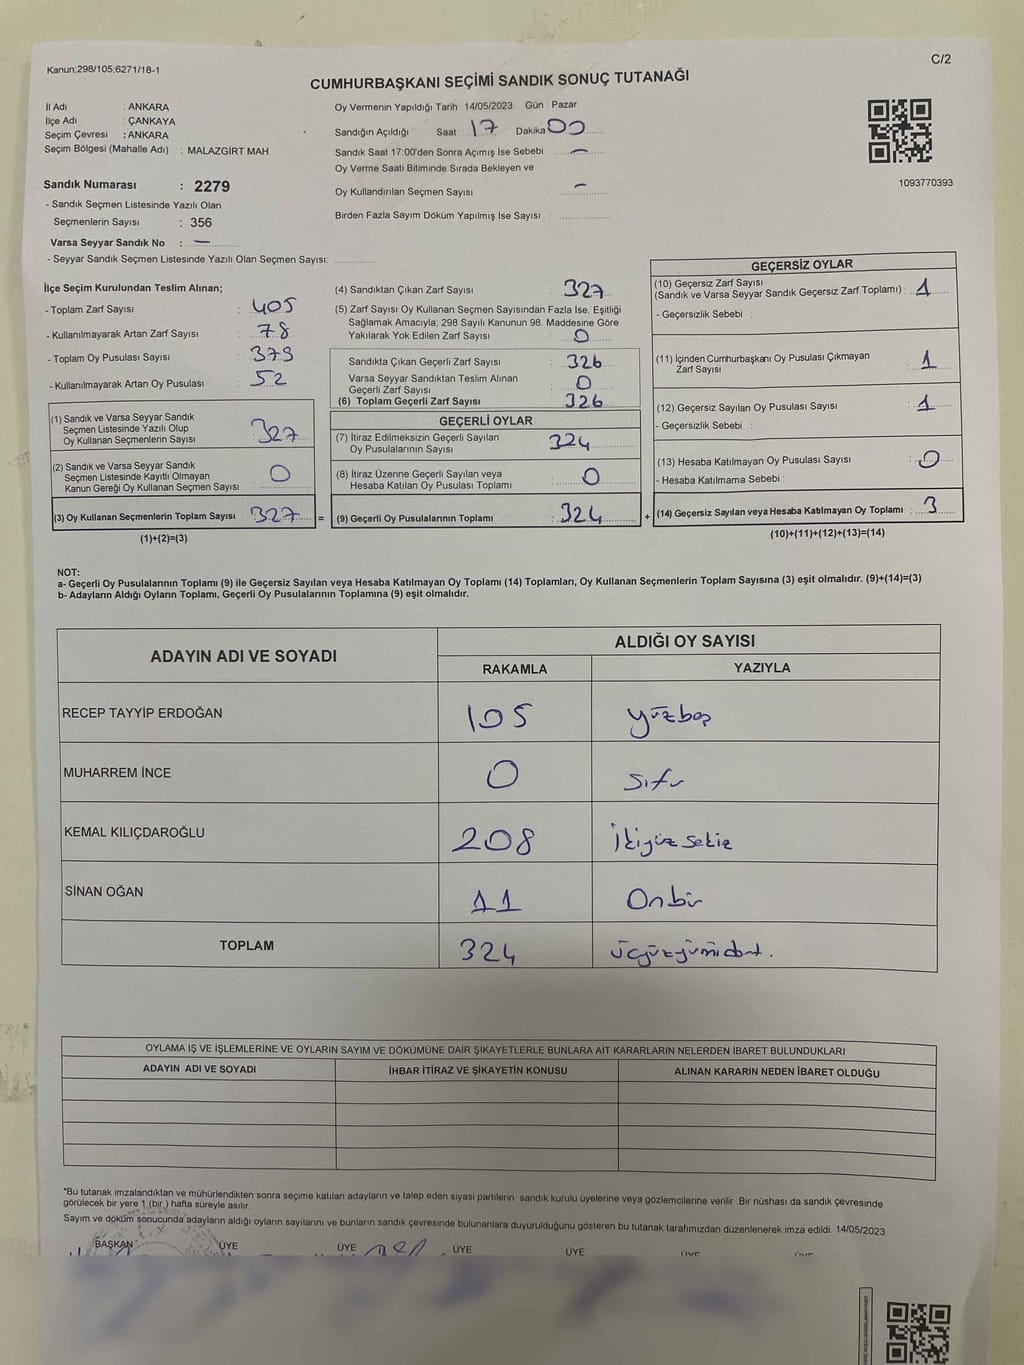 Kanun;298/105,6271/18-1
C/2
CUMHURBAŞKANI SEÇİMİ SANDIK SONUÇ TUTANAĞI
İl Adı : ANKARA
İlçe Adı : ÇANKAYA
Seçim Çevresi : ANKARA
Seçim Bölgesi (Mahalle Adı) : MALAZGİRT MAH.
Sandık Numarası : 2279
- Sandık Seçmen Listesinde Yazılı Olan
Seçmenlerin Sayısı : 356
Varsa Seyyar Sandık No : —
- Seyyar Sandık Seçmen Listesinde Yazılı Olan Seçmen Sayısı:
Oy Vermenin Yapıldığı Tarih 14/05/2023 Gün : Pazar
Sandığın Açıldığı Saat : 17 Dakika 00
Sandık Saat 17:00'den Sonra Açımış İse Sebebi : —
Oy Verme Saati Bitiminde Sırada Bekleyen ve
Oy Kullandırılan Seçmen Sayısı : —
Birden Fazla Sayım Döküm Yapılmış İse Sayısı :
1093770393
İlçe Seçim Kurulundan Teslim Alınan;
- Toplam Zarf Sayısı : 405
- Kullanılmayarak Artan Zarf Sayısı : 78
- Toplam Oy Pusulası Sayısı : 379
- Kullanılmayarak Artan Oy Pusulası : 52
(1) Sandık ve Varsa Seyyar Sandık
Seçmen Listesinde Yazılı Olup
Oy Kullanan Seçmenlerin Sayısı : 327
(2) Sandık ve Varsa Seyyar Sandık
Seçmen Listesinde Kayıtlı Olmayan
Kanun Gereği Oy Kullanan Seçmen Sayısı : 0
(3) Oy Kullanan Seçmenlerin Toplam Sayısı : 327 =
(1)+(2)=(3)
(4) Sandıktan Çıkan Zarf Sayısı : 327
(5) Zarf Sayısı Oy Kullanan Seçmen Sayısından Fazla İse, Eşitliği
Sağlamak Amacıyla; 298 Sayılı Kanunun 98. Maddesine Göre
Yakılarak Yok Edilen Zarf Sayısı : 0
Sandıkta Çıkan Geçerli Zarf Sayısı : 326
Varsa Seyyar Sandıktan Teslim Alınan
Geçerli Zarf Sayısı : 0
(6) Toplam Geçerli Zarf Sayısı : 326
GEÇERLİ OYLAR
(7) İtiraz Edilmeksizin Geçerli Sayılan
Oy Pusulalarının Sayısı : 324
(8) İtiraz Üzerine Geçerli Sayılan veya
Hesaba Katılan Oy Pusulası Toplamı : 0
(9) Geçerli Oy Pusulalarının Toplamı : 324 +
GEÇERSİZ OYLAR
(10) Geçersiz Zarf Sayısı
(Sandık ve Varsa Seyyar Sandık Geçersiz Zarf Toplamı) : 1
- Geçersizlik Sebebi :
(11) İçinden Cumhurbaşkanı Oy Pusulası Çıkmayan
Zarf Sayısı : 1
(12) Geçersiz Sayılan Oy Pusulası Sayısı : 1
- Geçersizlik Sebebi :
(13) Hesaba Katılmayan Oy Pusulası Sayısı : 0
- Hesaba Katılmama Sebebi :
(14) Geçersiz Sayılan veya Hesaba Katılmayan Oy Toplamı : 3
(10)+(11)+(12)+(13)=(14)
NOT:
a- Geçerli Oy Pusulalarının Toplamı (9) ile Geçersiz Sayılan veya Hesaba Katılmayan Oy Toplamı (14) Toplamları, Oy Kullanan Seçmenlerin Toplam Sayısına (3) eşit olmalıdır. (9)+(14)=(3)
b- Adayların Aldığı Oyların Toplamı, Geçerli Oy Pusulalarının Toplamına (9) eşit olmalıdır.
ADAYIN ADI VE SOYADI ALDIĞI OY SAYISI
RAKAMLA YAZIYLA
RECEP TAYYİP ERDOĞAN 105 yüzbeş
MUHARREM İNCE 0 sıfır
KEMAL KILIÇDAROĞLU 208 İkiyüz sekiz
SİNAN OĞAN 11 Onbir
TOPLAM 324 üçyüzyirmidört.
OYLAMA İŞ VE İŞLEMLERİNE VE OYLARIN SAYIM VE DÖKÜMÜNE DAİR ŞİKAYETLERLE BUNLARA AİT KARARLARIN NELERDEN İBARET BULUNDUKLARI
ADAYIN ADI VE SOYADI İHBAR İTİRAZ VE ŞİKAYETİN KONUSU ALINAN KARARIN NEDEN İBARET OLDUĞU
*Bu tutanak imzalandıktan ve mühürlendikten sonra seçime katılan adayların ve talep eden siyasi partilerin sandık kurulu üyelerine veya gözlemcilerine verilir. Bir nüshası da sandık çevresinde
görülecek bir yere 1 (bir) hafta süreyle asılır.
Sayım ve döküm sonucunda adayların aldığı oyların sayılarını ve bunların sandık çevresinde bulunanlara duyurulduğunu gösteren bu tutanak tarafımızdan düzenlenerek imza edildi. 14/05/2023
BAŞKAN ÜYE ÜYE ÜYE ÜYE ÜYE ÜYE